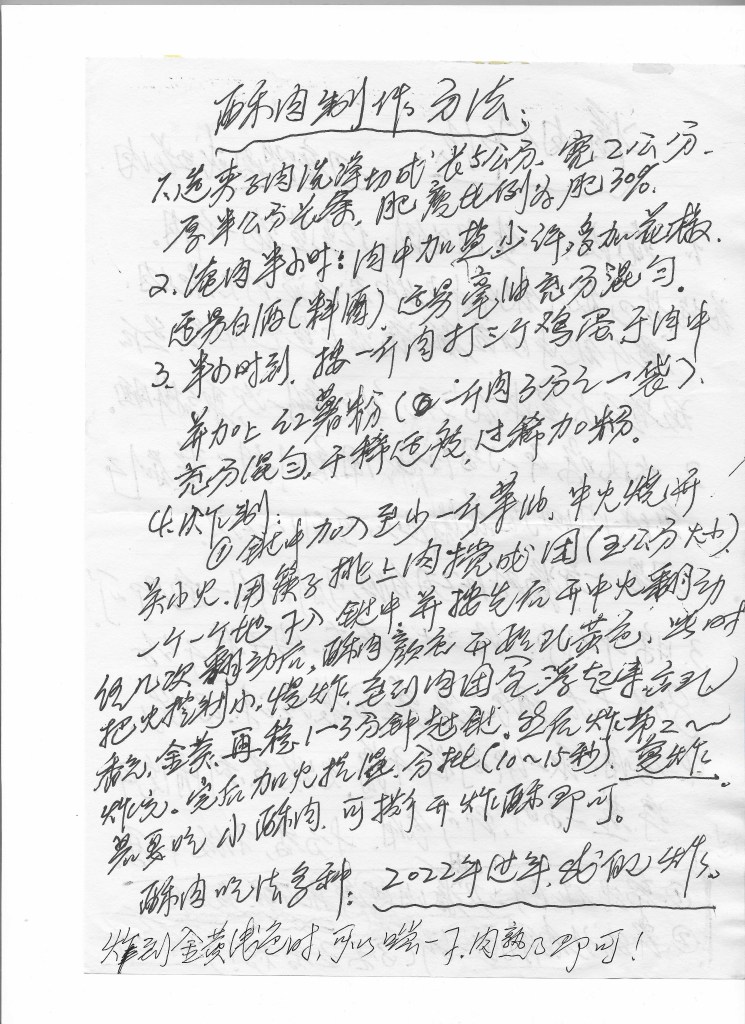 酥肉制作方法:
1.选夹子肉洗净切成长5公分,宽2公分.
厚半公分长条,肥瘦比例为肥30%.
2.腌肉半小时:肉中加盐少许,多加花椒.
适量白酒(料酒),适量毫油充分混匀。
3.半小时到.按一斤肉打三个鸡蛋于肉中
并加上红薯粉(一斤肉3分之一袋),
充分混匀,干稀适度,过稀加粉。
4.炸制:
①锅中加入至少一斤菜油,中火烧开
关小火.用筷子挑上肉搅成团(3公分大小)
一个一个地下入锅中,并按先后开中火翻动
但几次翻动后,酥肉颜色开始现黄色,此时
把火控制小,慢炸,色到肉团全浮起来,去现
金黄,再稳1-3分钟起锅。然后炸第2~
炸完。完后加火,分批(10~15秒),复炸.
若要吃小酥肉,可撕开炸酥即可。
酥肉吃法多种:2022年过年,我们炸。
炸到金黄浅色时,可以尝一下,肉熟了即可!